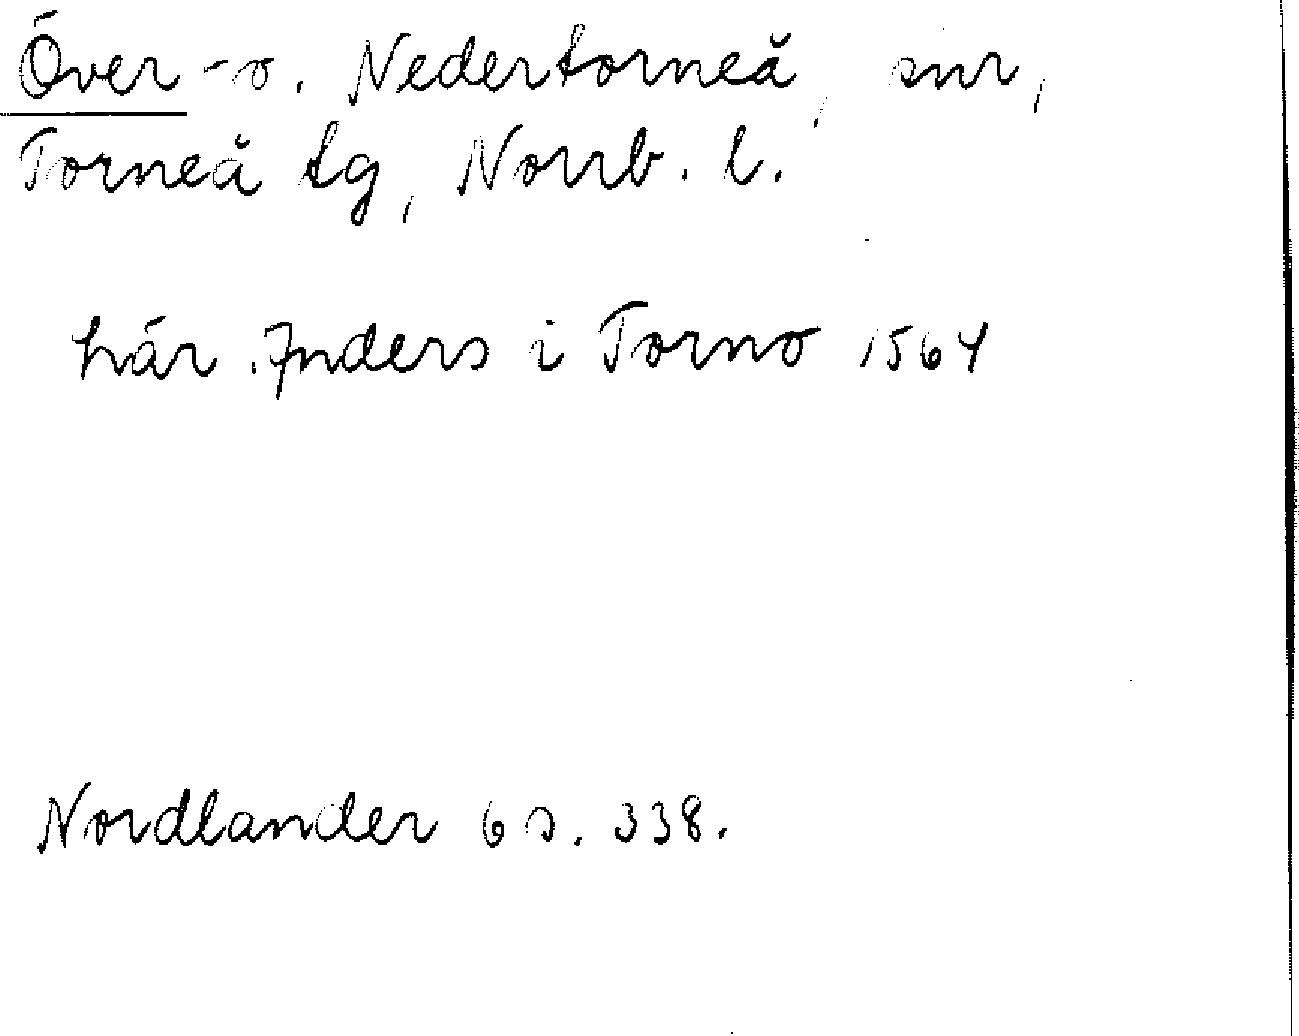 Över- o. Nedertorneå, snr,
Torneå tg, Norrb. l.
här Anders i Torno 1564
Nordlander 6 s. 338.